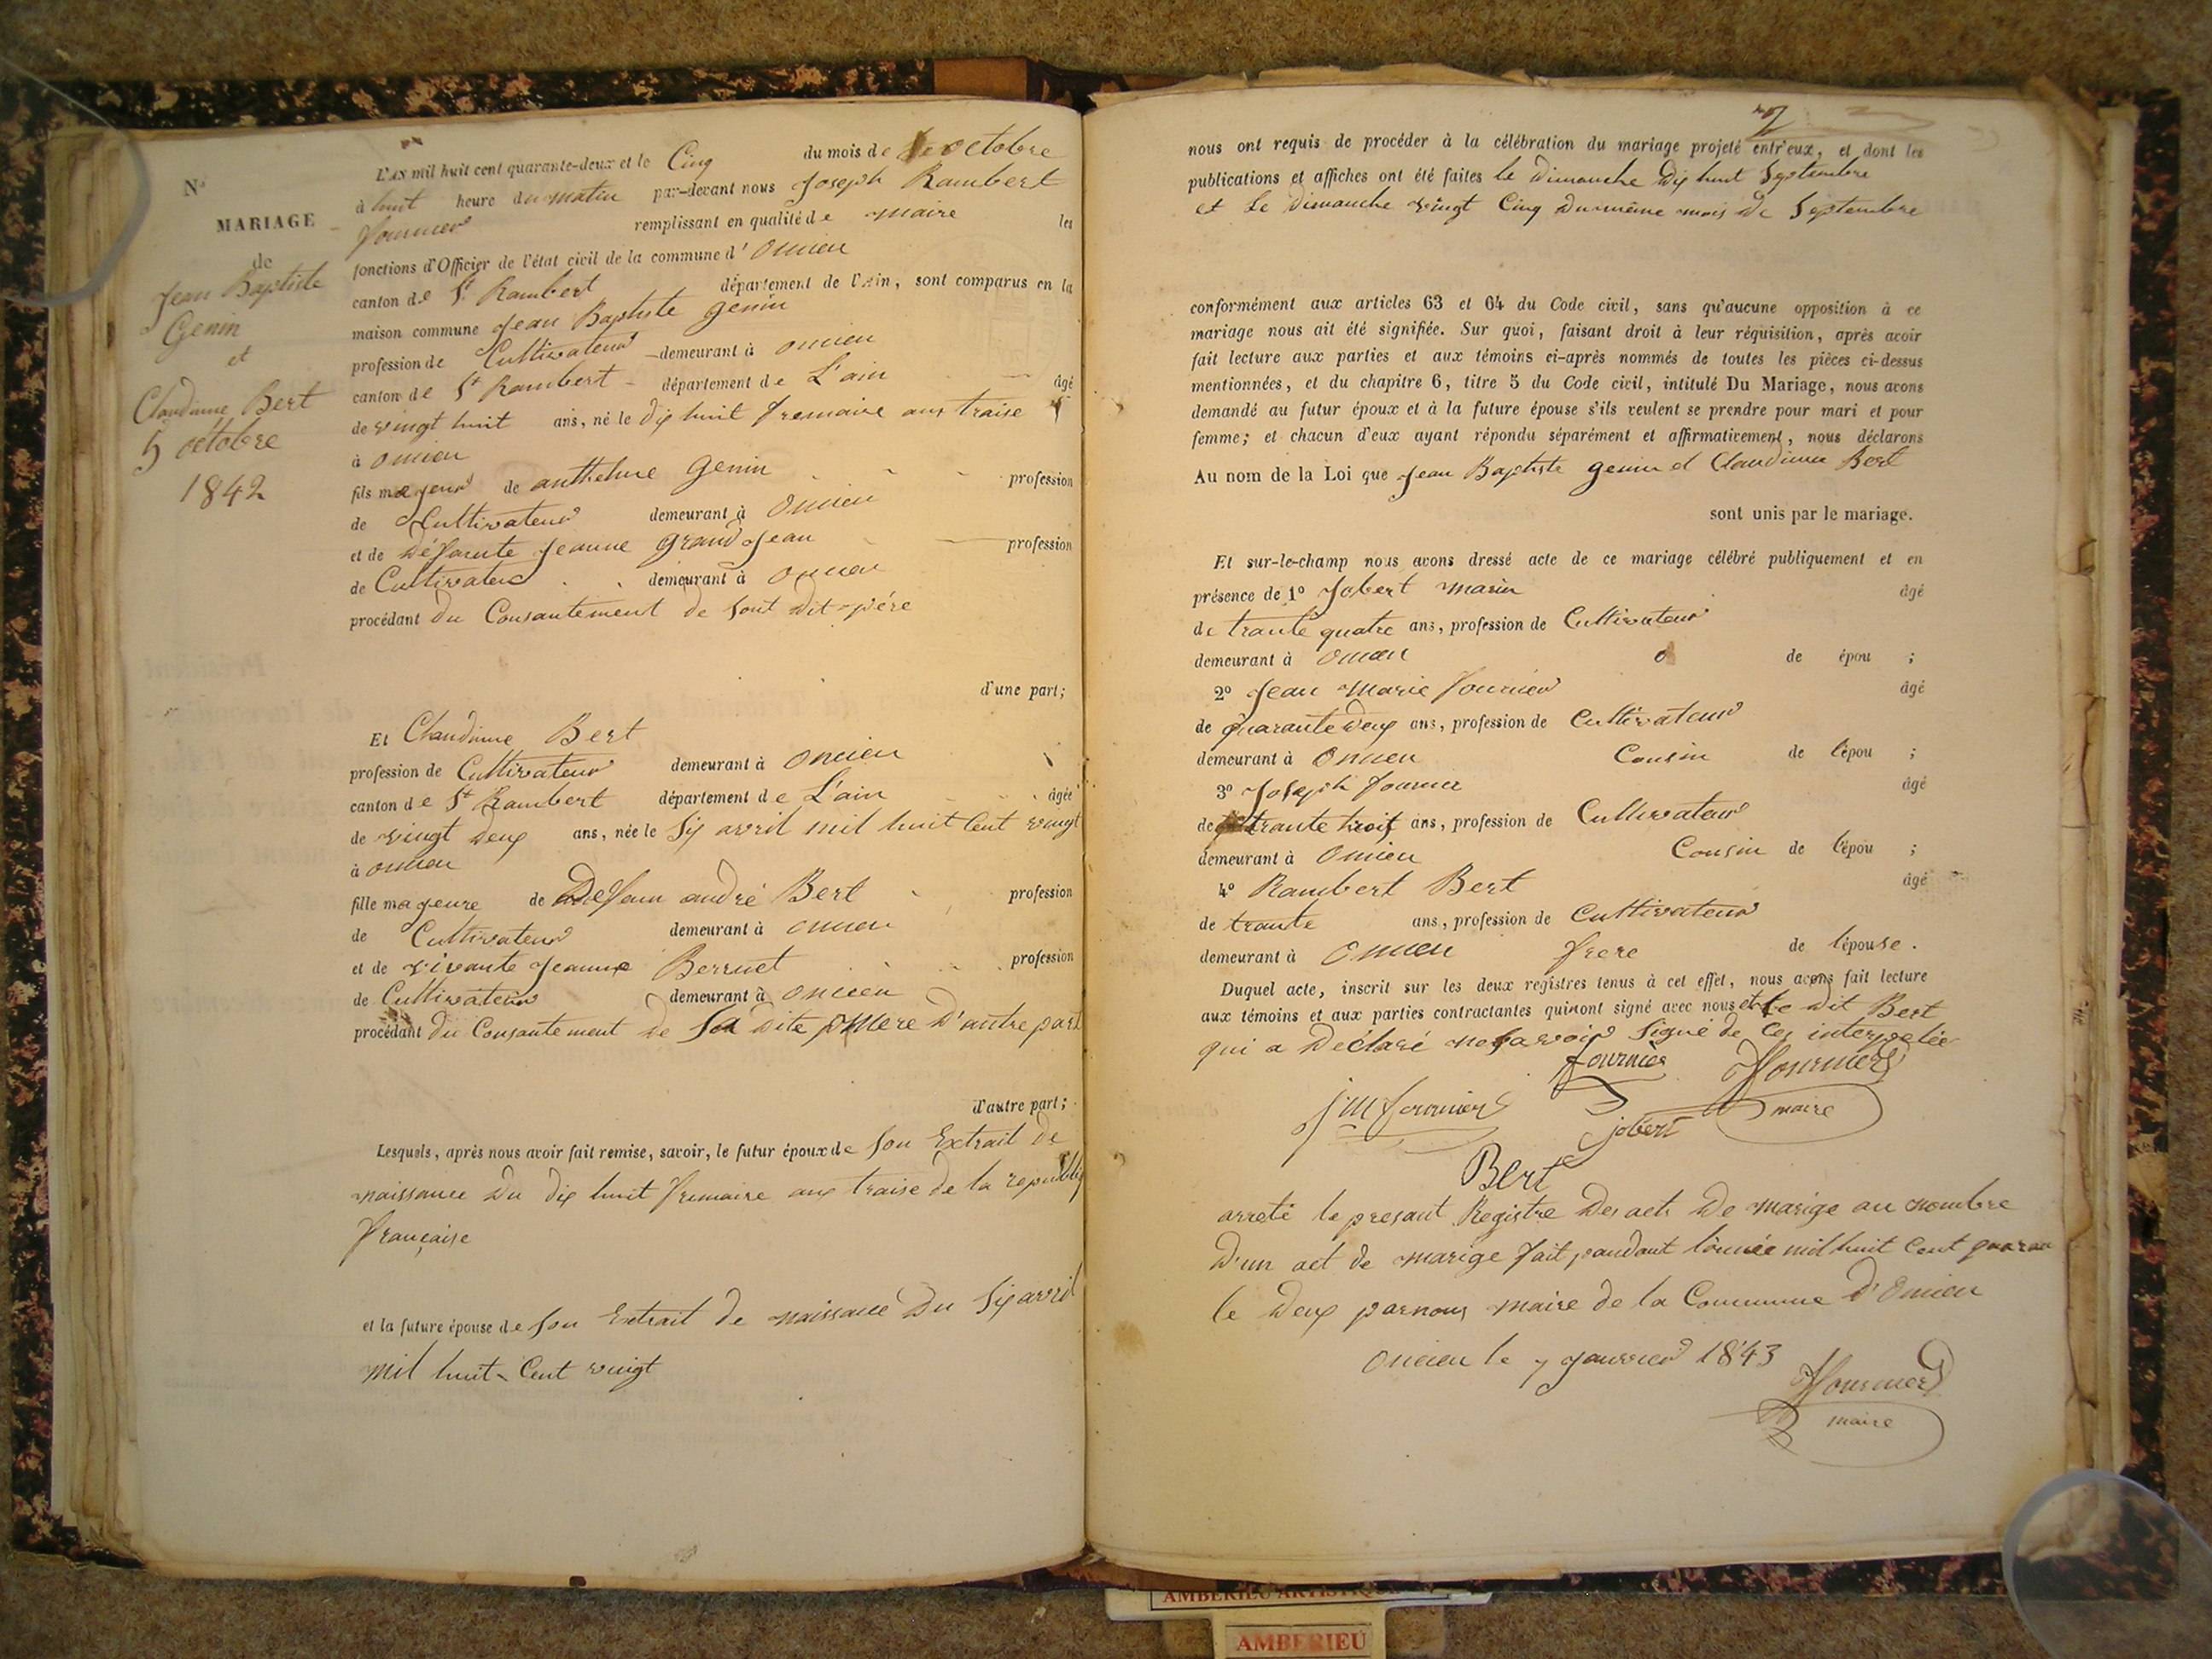 N.o
MARIAGE
de
Jean Baptiste
Genin
et
Claudinne Bert
5 octobre
1842
L'AN mil huit cent quarante-deux et le Cinq du mois de octobre
à huit heure du matin par-devant nous Joseph Rambert
fournier remplissant en qualité de maire les
fonctions d'Officier de l'état civil de la commune d'Oncieu
canton de St Rambert département de l'Ain, sont comparus en la
maison commune Jean Baptiste genin
profession de Cultivateur demeurant à oncieu
canton de St Rambert département de L'ain âgé
de vingt huit ans, né le dix huit fremaire anx traise
à oncieu
fils majeur de anthelme Genin profession
de Cultivateur demeurant à Oncieu
et de défaunte Jeanne grand Jean profession
de Cultivateur demeurant à oncieu
procédant du Consantement de sont dit père
d'une part;
Et Claudinne Bert
profession de Cultivateur demeurant à oncieu
canton de St Rambert département de L'ain âgée
de vingt deux ans, née le six avril mil huit Cent vingt
à oncieu
fille majeure de Defeun andré Bert profession
de Cultivateur demeurant à oncieu
et de vivante Jeanne Berruet profession
de Cultivateur demeurant à oncieu
procédant du Consantement de Sa dite mere D'autre part
d'autre part;
Lesquels, après nous avoir fait remise, savoir, le futur époux de son Extrait de
naissance du dix huit frumaire anx traise de la republiq
française
et la future épouse de son Extrait de naissance Du Six avril
mil huit Cent vingt
nous ont requis de procéder à la célébration du mariage projeté entr'eux, et dont les
publications et affiches ont été faites le dimanche dix huit Septembre
et Le dimanche vingt Cinq du même mois de Septembre
conformément aux articles 63 et 64 du Code civil, sans qu'aucune opposition à ce
mariage nous ait été signifiée. Sur quoi, faisant droit à leur réquisition, après avoir
fait lecture aux parties et aux témoins ci-après nommés de toutes les pièces ci-dessus
mentionnées, et du chapitre 6, titre 5 du Code civil, intitulé Du Mariage, nous avons
demandé au futur époux et à la future épouse s'ils veulent se prendre pour mari et pour
femme; et chacun d'eux ayant répondu séparément et affirmativement, nous déclarons
Au nom de la Loi que Jean Baptiste genin et Claudinne Bert
sont unis par le mariage.
Et sur-le-champ nous avons dressé acte de ce mariage célébré publiquement et en
présence de 1o Jobert marin âgé
de trante quatre ans, profession de Cultivateur
demeurant à oncieu de épou ;
2o Jean Marie fournier âgé
de quarante deux ans, profession de Cultivateur
demeurant à Oncieu Cousin de l'épou ;
3o Joseph fournier âgé
de trante troix ans, profession de Cultivateur
demeurant à Oncieu Cousin de l'épou ;
4o Rambert Bert âgé
de trante ans, profession de Cultivateur
demeurant à Oncieu frere de l'épouse.
Duquel acte, inscrit sur les deux registres tenus à cet effet, nous avons fait lecture
aux témoins et aux parties contractantes qui nont signé avec nous et le dit Bert
qui a Déclaré ne savoir signé de Ces interpelée
fournier fournier
jm fournier jobert maire
Bert
arreté le presant Registre des acts de marige au nombre
D'un act de marige fait pandant l'année mil huit Cent quaran
te Deux par nous maire de la Commune d'Oncieu
oncieu le 7 janvier 1843
fournier
maire
AMBERIEU ARTISTIQUE
AMBERIEU